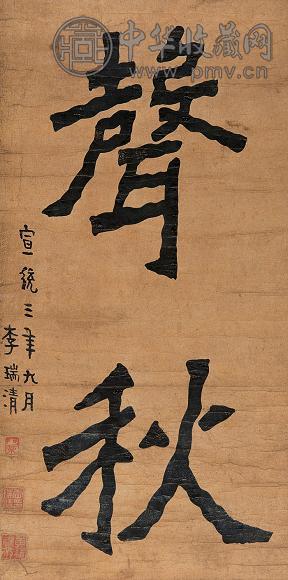 中华收藏网
www.pmv.cn
聲秋
宣統三年九月
李瑞清